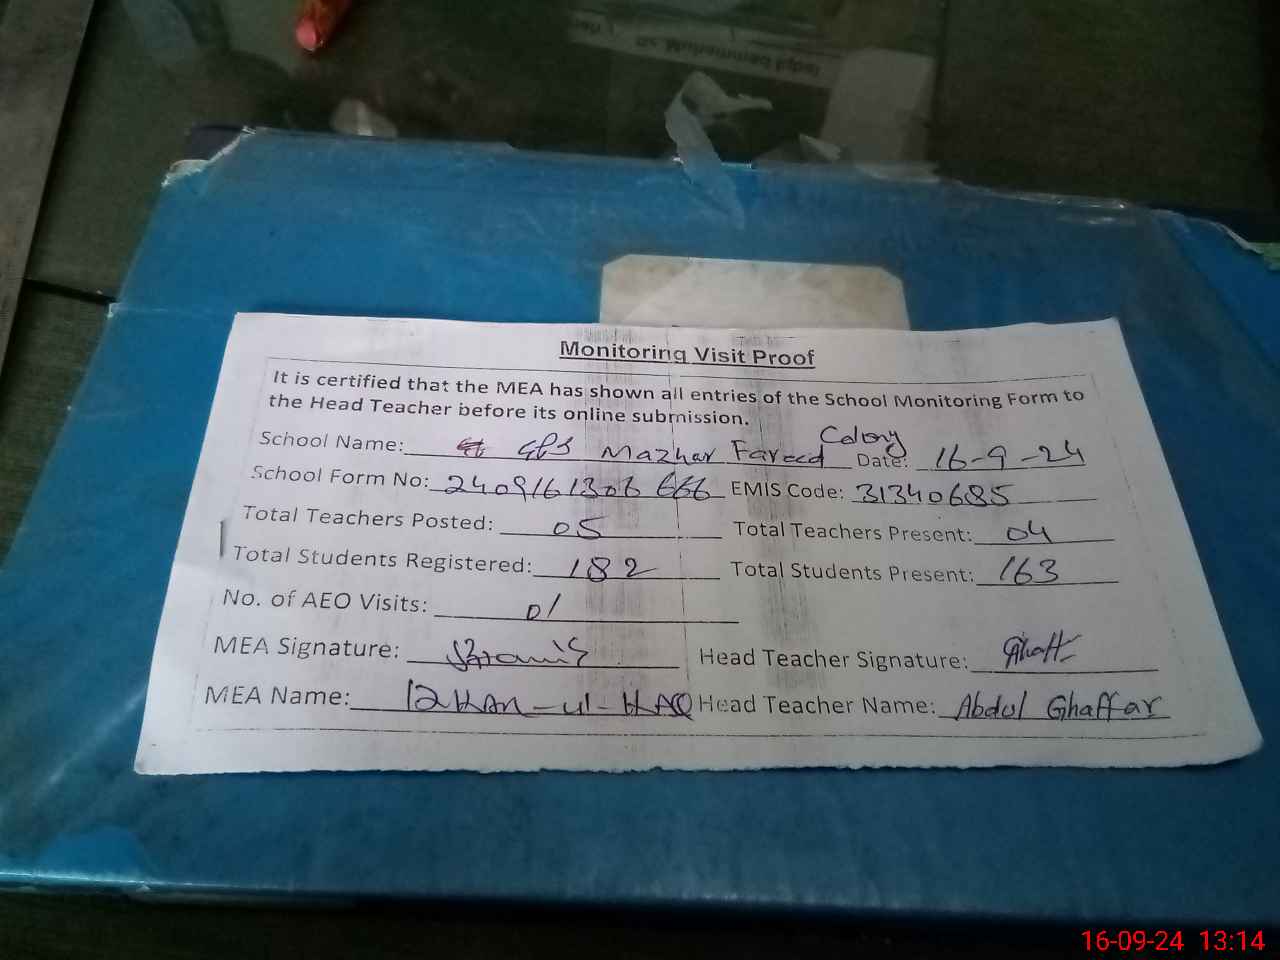 Monitoring Visit Proof
It is certified that the MEA has shown all entries of the School Monitoring Form to
the Head Teacher before its online submission.
School Name: GPS Mazhar Fareed Colony Date: 16-9-24
School Form No: 2409161306666 EMIS Code: 31340685
Total Teachers Posted: 05 Total Teachers Present: 04
Total Students Registered: 182 Total Students Present: 163
No. of AEO Visits: 01
MEA Signature: Head Teacher Signature:
MEA Name: Head Teacher Name: Abdul Ghaffar
16-09-24 13:14